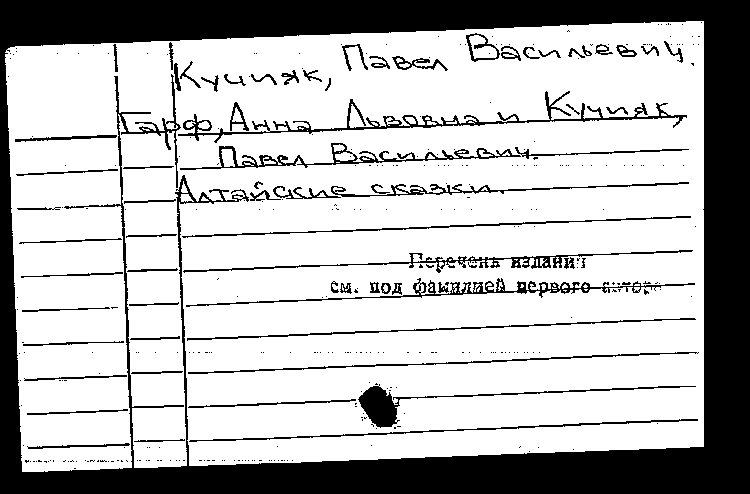 Кучияк, Павел Васильевич.
Гарф, Анна Львовна и Кучияк,
Павел Васильевич.
Алтайские сказки.
Перечень изданий
см. под фамилией первого автора